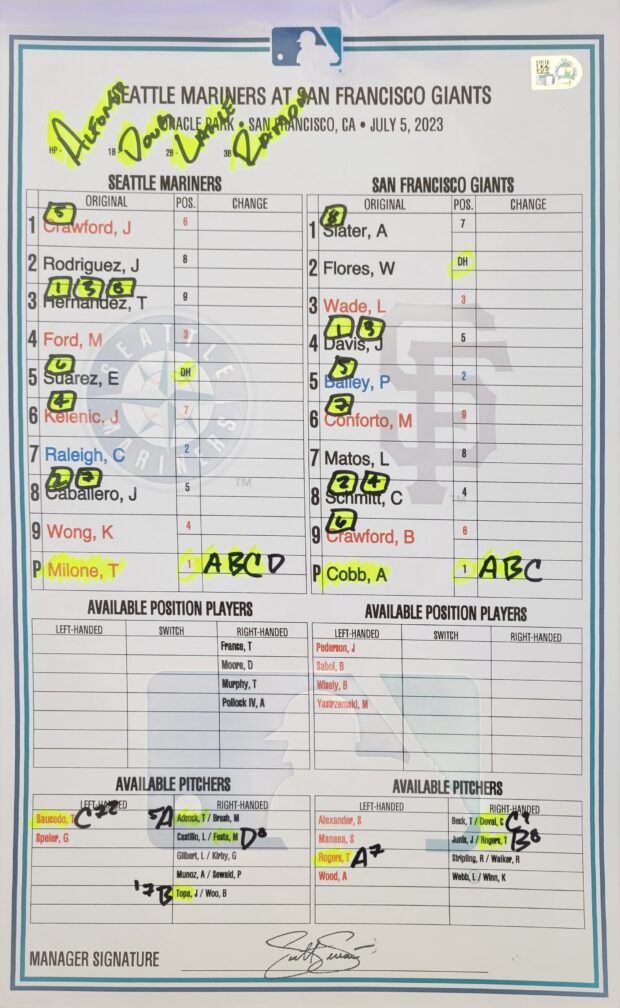 SEATTLE MARINERS AT SAN FRANCISCO GIANTS
ORACLE PARK • SAN FRANCISCO, CA • JULY 5, 2023
HP- ALFONSO 1B- DOUG 2B- LANCE 3B RAMON
SEATTLE MARINERS
ORIGINAL POS. CHANGE
5
1 Crawford, J 6
2 Rodriguez, J 8
1 3 8
3 Hernandez, T 9
4 Ford, M 3
6
5 Suarez, E DH
4
6 Kelenic, J 7
7 Raleigh, C 2
2 7
8 Caballero, J 5
9 Wong, K 4
P Milone, T 1 ABCD
SEATTLE
MARINERS
TM
SAN FRANCISCO GIANTS
ORIGINAL POS. CHANGE
8
1 Slater, A 7
2 Flores, W DH
3 Wade, L 3
1 3
4 Davis, J 5
5
5 Bailey, P 2
7
6 Conforto, M 9
7 Matos, L 8
2 4
8 Schmitt, C 4
6
9 Crawford, B 6
P Cobb, A 1 ABC
SF
TM
AVAILABLE POSITION PLAYERS
LEFT-HANDED SWITCH RIGHT-HANDED
France, T
Moore, D
Murphy, T
Pollock IV, A
AVAILABLE POSITION PLAYERS
LEFT-HANDED SWITCH RIGHT-HANDED
Pederson, J
Sabol, B
Wisely, B
Yastrzemski, M
AVAILABLE PITCHERS
LEFT-HANDED RIGHT-HANDED
Saucedo, T C 7 5 A Adcock, T / Brash, M
Speier, G Castillo, L / Festa, M D8
Gilbert, L / Kirby, G
Munoz, A / Sewald, P
'7 B Topa, J / Woo, B
AVAILABLE PITCHERS
LEFT-HANDED RIGHT-HANDED
Alexander, S Beck, T / Doval, C C9
Manaea, S Junis, J / Rogers, T B8
Rogers, T A7 Stripling, R / Walker, R
Wood, A Webb, L / Winn, K
MANAGER SIGNATURE